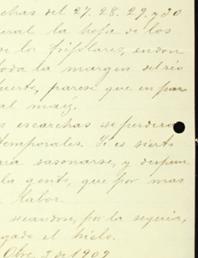 chas del 27. 28. 29. y 30
eral la hoja de los
de los frijolares, en don
toda la margen del rio
uerte, parese que en par
al maiz.
s escarchas se perdieron
temporales. Si es sierto
ara sasonarse, y despues
la gente, que por mas
labor.
secandon, por la sequia,
gado el hielo.
Obre. 3 de 1909